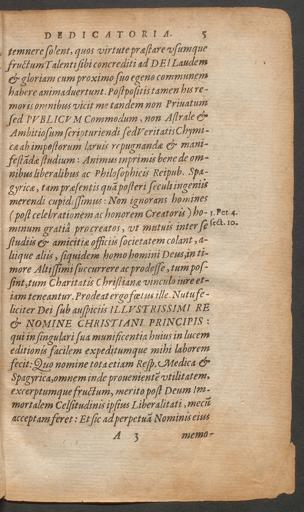 DEDICATORIA. 5
temnere solent, quos virtute præstare vsumque
fructum Talenti sibi concrediti ad DEI Laudem
& gloriam cum proximo suo egeno communem
habere animaduertunt. Postpositis tamen his re-
moris omnibus vicit me tandem non Priuatum
sed PVBLICVM Commodum, non Astrale &
Ambitiosum scripturiendi sed Veritatis Chymi-
cæ ab impostorum laruis repugnandæ & mani-
festãdæ studium: Animus inprimis bene de om-
nibus liberalibus ac Philosophicis Reipub. Spa-
gyricæ, tam præsentis quã posteri seculi ingeniis
merendi cupidissimus: Non ignorans homines
(post celebrationem ac honorem Creatoris) ho- 1. Pet. 4.
minum gratiâ procreatos, vt mutuis inter se sect. 10.
studiis & amicitiæ officiis societatem colant, a-
liique aliis, siquidem homo homini Deus, in ti-
more Altissimi succurrere ac prodesse, tum pos-
sint, tum Charitatis Christianæ vinculo iure et-
iam teneantur. Prodeat ergo fœtus ille. Nutu fe-
liciter Dei sub auspiciis ILLVSTRISSIMI RE
& NOMINE CHRISTIANI PRINCIPIS:
qui in singulari sua munificentia huius in lucem
editionis facilem expeditumque mihi laborem
fecit: Quo nomine tota etiam Resp. Medica &
Spagyrica, omnem inde prouenientẽ vtilitatem,
excerptumque fructum, merito post Deum Im-
mortalem Celsitudinis ipsius Liberalitati, mecũ
acceptam feret: Et sic ad perpetuã Nominis eius
A 3 memo-